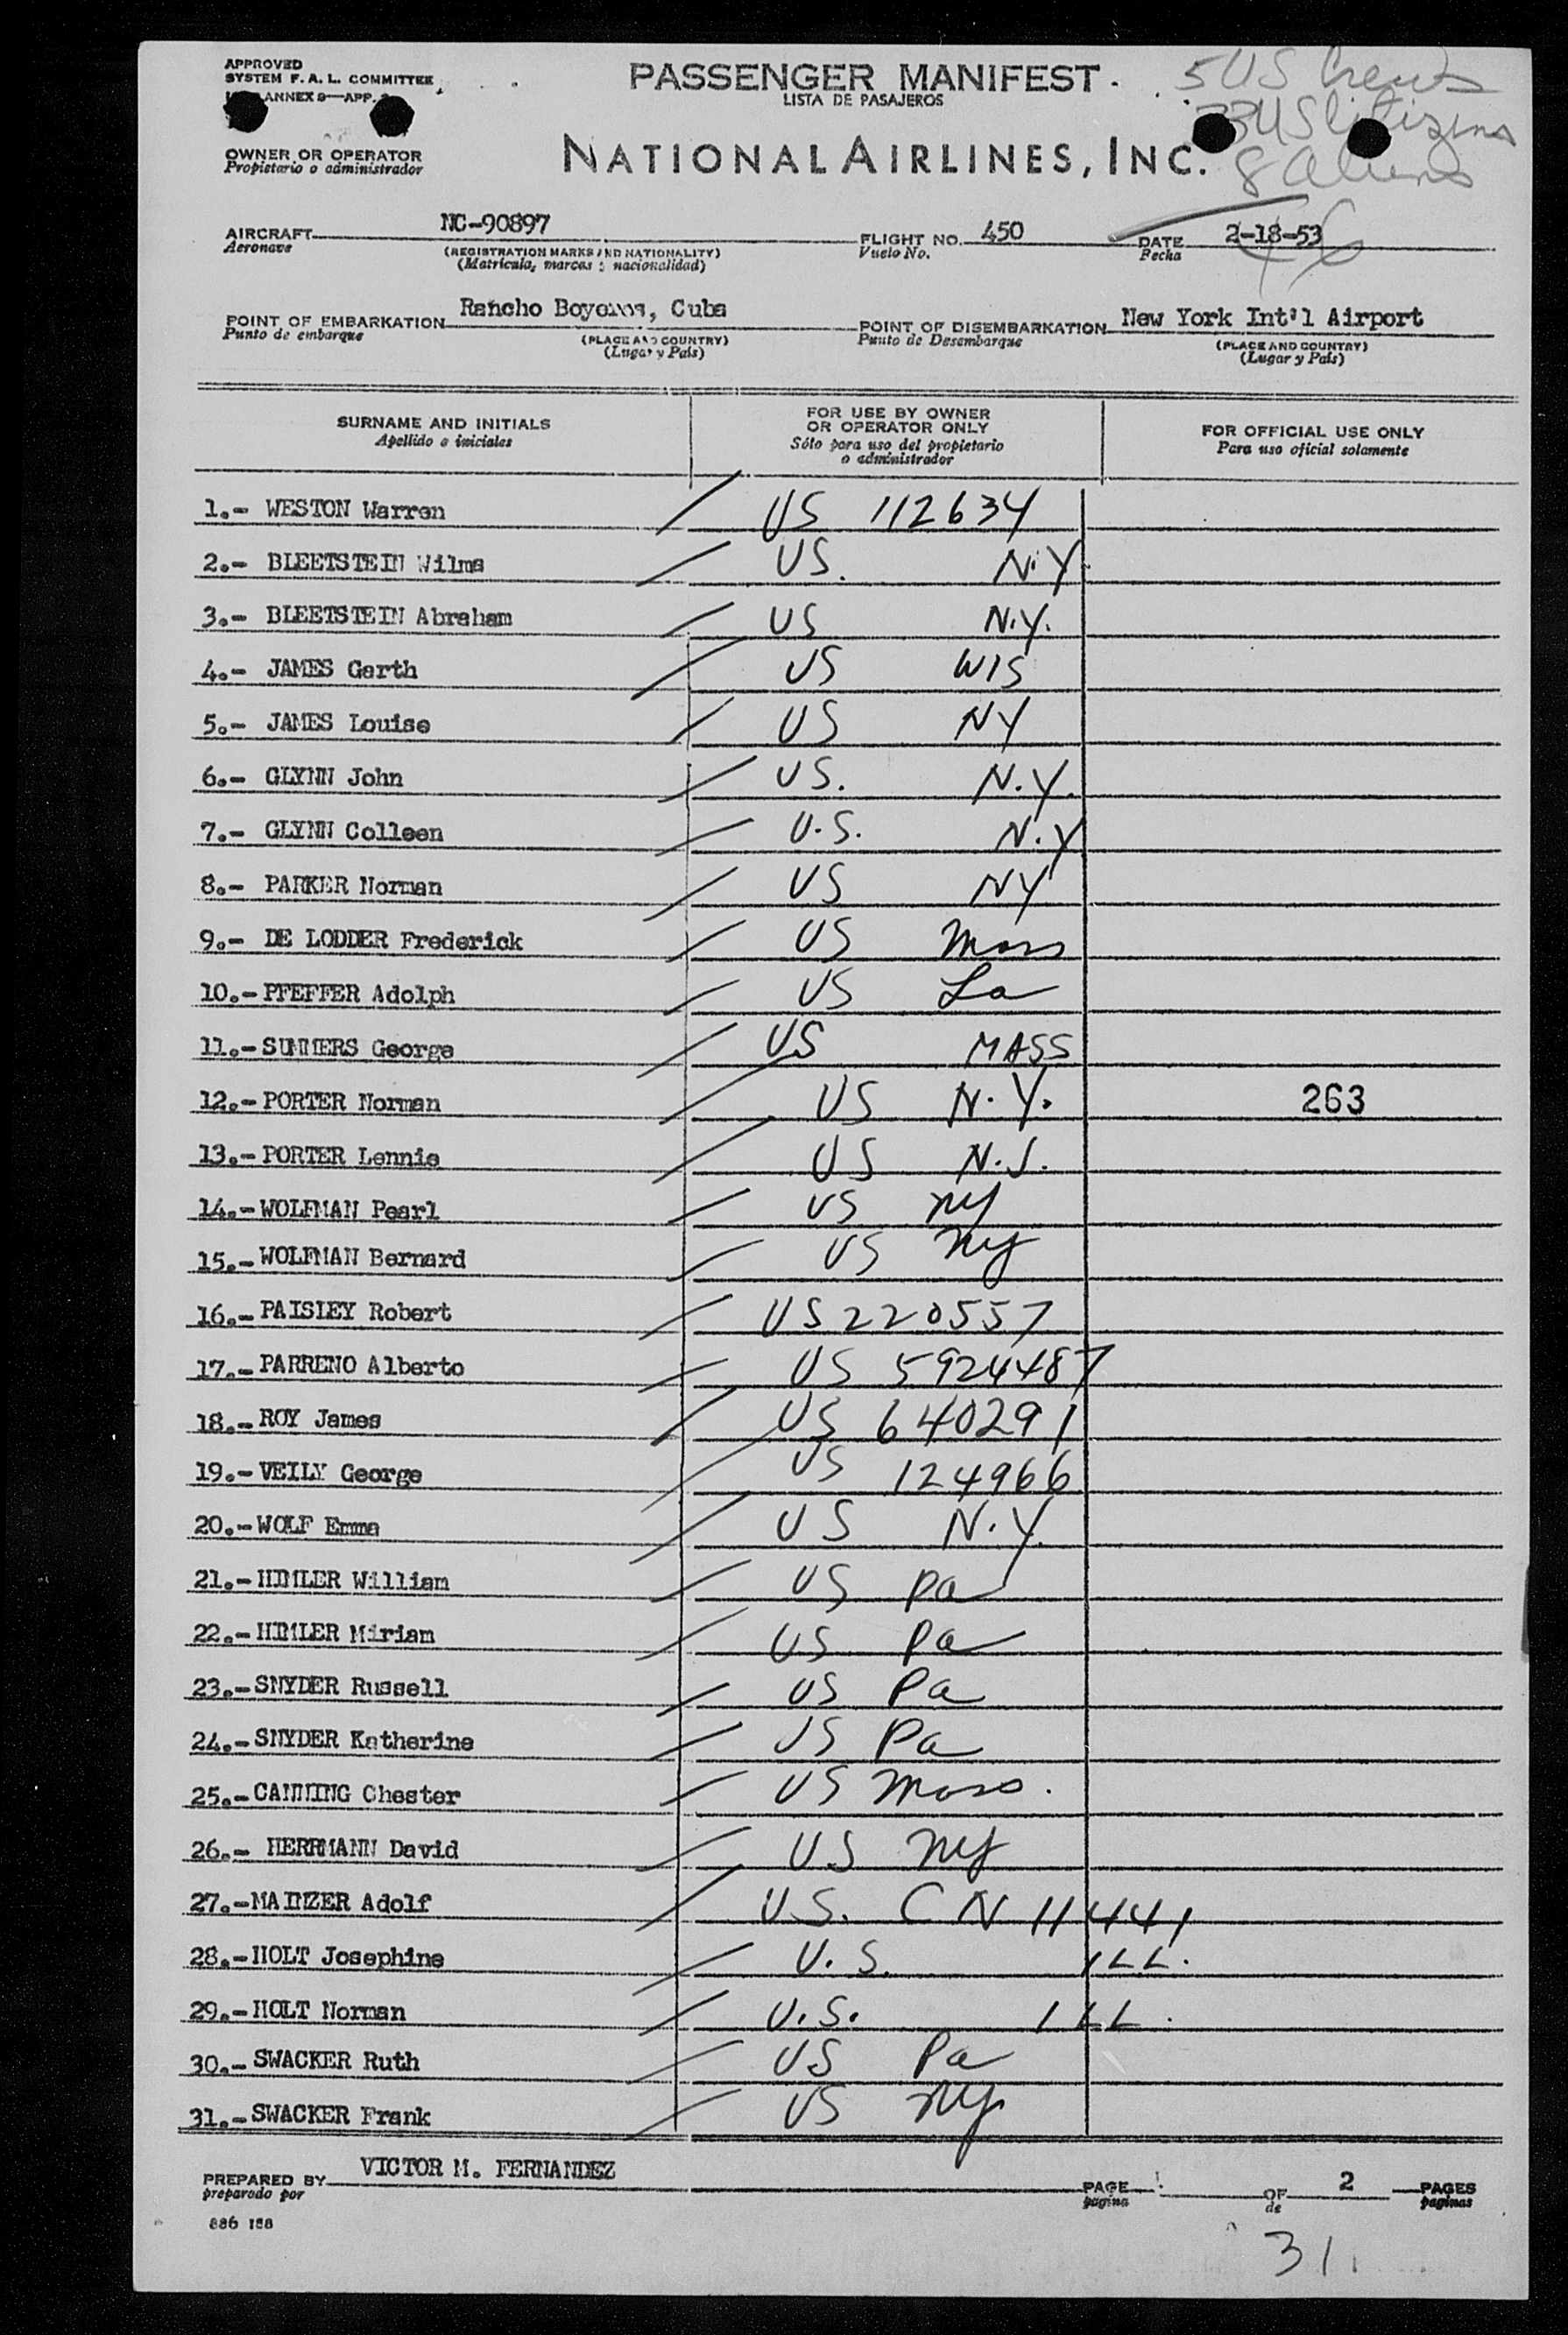 APPROVED
SYSTEM F. A. L. COMMITTEE
ANNEX 9—APP.
PASSENGER MANIFEST
LISTA DE PASAJEROS
5 US Crews
33 US Citizens
8 Aliens
46
OWNER OR OPERATOR
Propietario o administrador
NATIONAL AIRLINES, INC.
AIRCRAFT NC-90897
Aeronave
(REGISTRATION MARKS AND NATIONALITY)
(Matrícula, marcas y nacionalidad)
FLIGHT NO. 450
Vuelo No.
DATE 2-18-53
Fecha
POINT OF EMBARKATION Rancho Boyeros, Cuba
Punto de embarque
(PLACE AND COUNTRY)
(Lugar y País)
POINT OF DISEMBARKATION New York Int'l Airport
Punto de Desembarque
(PLACE AND COUNTRY)
(Lugar y País)
SURNAME AND INITIALS
Apellido e iniciales
FOR USE BY OWNER
OR OPERATOR ONLY
Sólo para uso del propietario
o administrador
FOR OFFICIAL USE ONLY
Para uso oficial solamente
1.- WESTON Warren US 112634
2.- BLEETSTEIN Wilma US. N.Y
3.- BLEETSTEIN Abraham US N.Y.
4.- JAMES Garth US WIS
5.- JAMES Louise US NY
6.- GLYNN John US. N.Y.
7.- GLYNN Colleen U.S. N.Y
8.- PARKER Norman US NY
9.- DE LODDER Frederick US Mass
10.- PFEFFER Adolph US La
11.- SUMMERS George US MASS
12.- PORTER Norman US N.Y. 263
13.- PORTER Lennie US N.J.
14.- WOLFMAN Pearl US NY
15.- WOLFMAN Bernard US NY
16.- PAISLEY Robert US 220557
17.- PARRENO Alberto US 5924487
18.- ROY James US 640291
19.- VEILY George US 124966
20.- WOLF Emma US N.Y.
21.- HIMLER William US Pa
22.- HIMLER Miriam US Pa
23.- SNYDER Russell US Pa
24.- SNYDER Katherine US Pa
25.- CANNING Chester US Mass.
26.- HERRMANN David US NY
27.- MAINZER Adolf U.S. CN 11441
28.- HOLT Josephine U.S. ILL.
29.- HOLT Norman U.S. ILL.
30.- SWACKER Ruth US Pa
31.- SWACKER Frank US NY
PREPARED BY VICTOR M. FERNANDEZ
preparado por
PAGE OF 2 PAGES
pagina de paginas
886 188
31